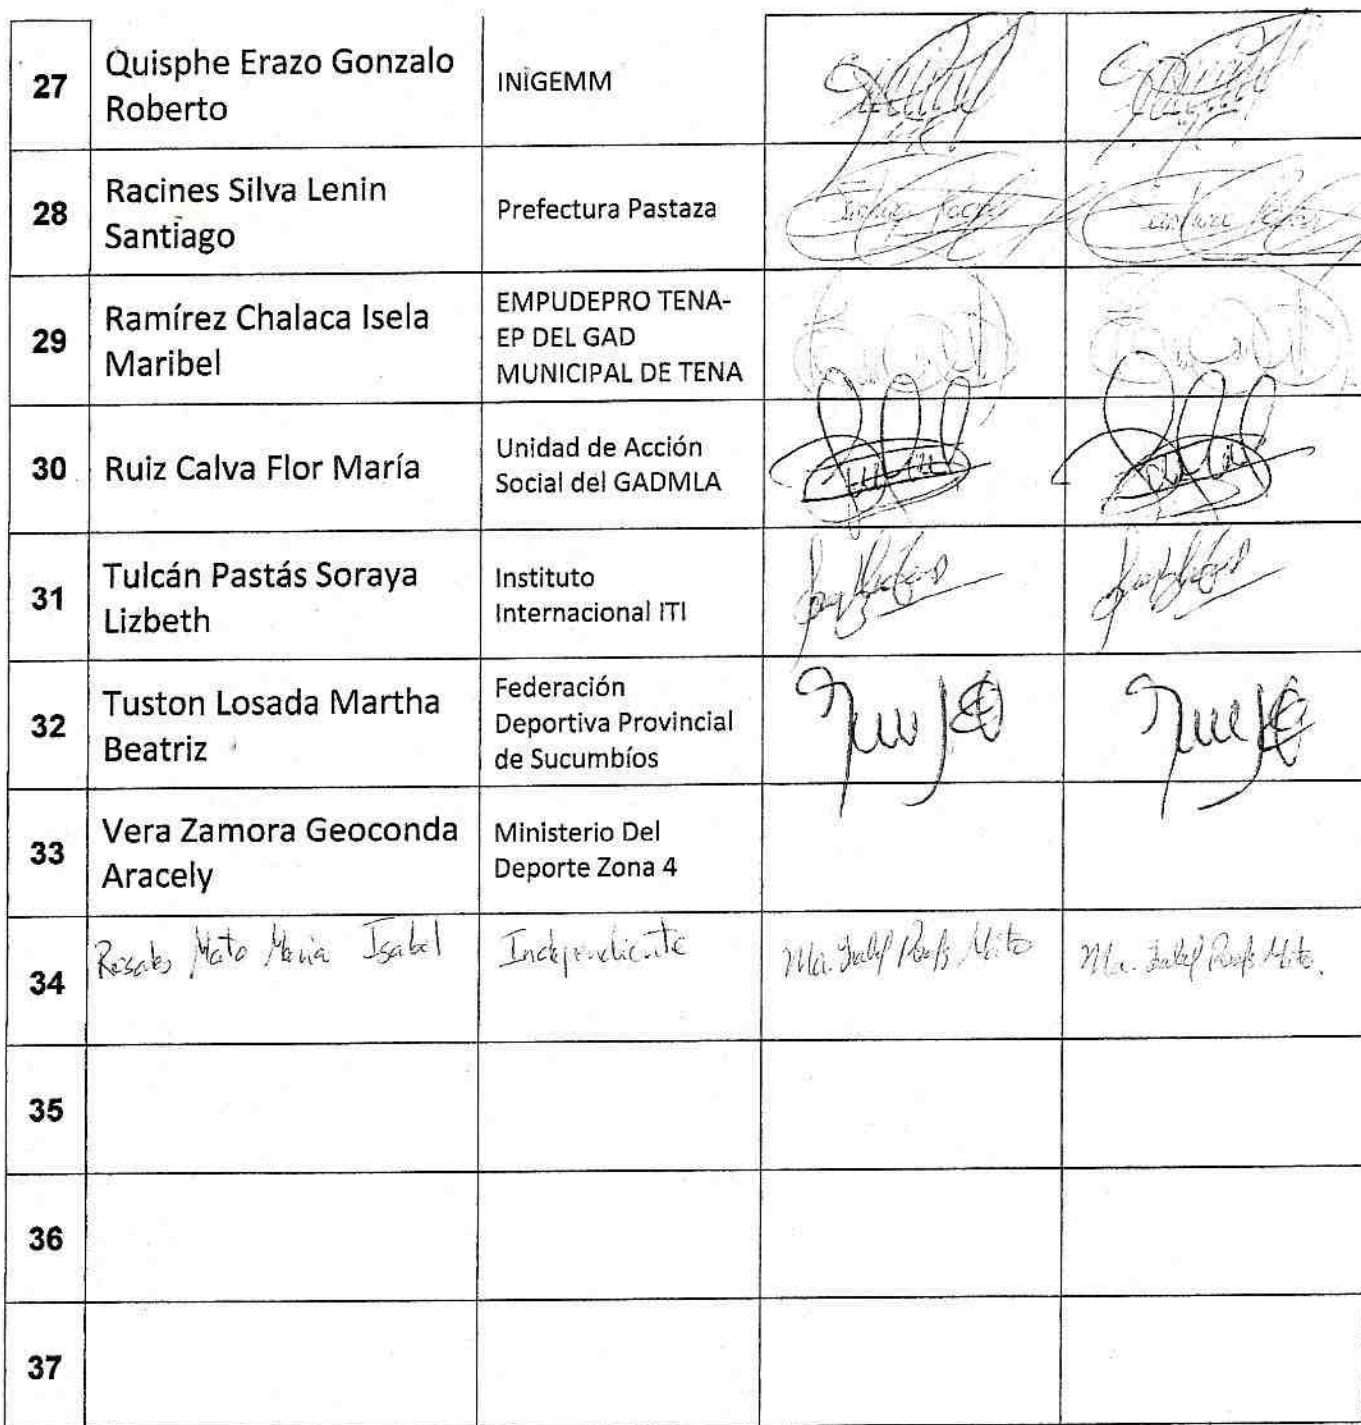 27
Quisphe Erazo Gonzalo
Roberto
INIGEMM
28
Racines Silva Lenin
Santiago
Prefectura Pastaza
29
Ramírez Chalaca Isela
Maribel
EMPUDEPRO TENA-
EP DEL GAD
MUNICIPAL DE TENA
30
Ruiz Calva Flor María
Unidad de Acción
Social del GADMLA
31
Tulcán Pastás Soraya
Lizbeth
Instituto
Internacional ITI
32
Tuston Losada Martha
Beatriz
Federación
Deportiva Provincial
de Sucumbíos
33
Vera Zamora Geoconda
Aracely
Ministerio Del
Deporte Zona 4
34
Rosales Mato Maria Isabel
Independiente
35
36
37